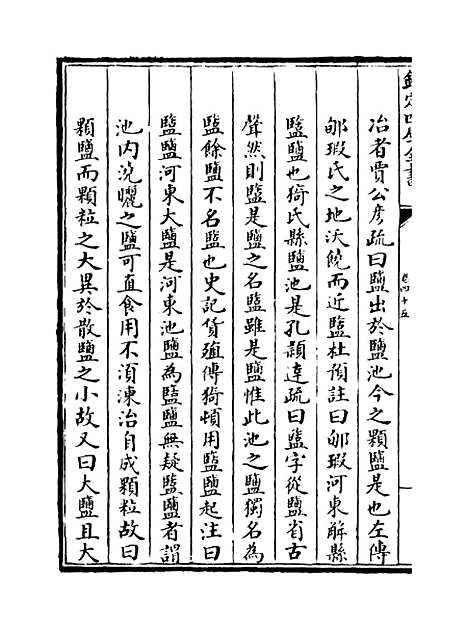 欽定四庫全書
卷四十五
冶者賈公彦疏曰鹽出於鹽池今之顆鹽是也左傳
郇瑕氏之地沃饒而近盬杜預註曰郇瑕河東解縣
盬鹽也猗氏縣鹽池是孔頴達疏曰盬字從鹽省古
聲然則盬是鹽之名盬雖是鹽惟此池之鹽獨名為
盬餘鹽不名盬也史記貨殖傳猗頓用盬鹽起注曰
盬鹽河東大鹽是河東池鹽為盬鹽無疑盬鹽者謂
池内澆曬之鹽可直食用不湏涷治自成顆粒故曰
顆鹽而顆粒之大異於散鹽之小故又曰大鹽且大